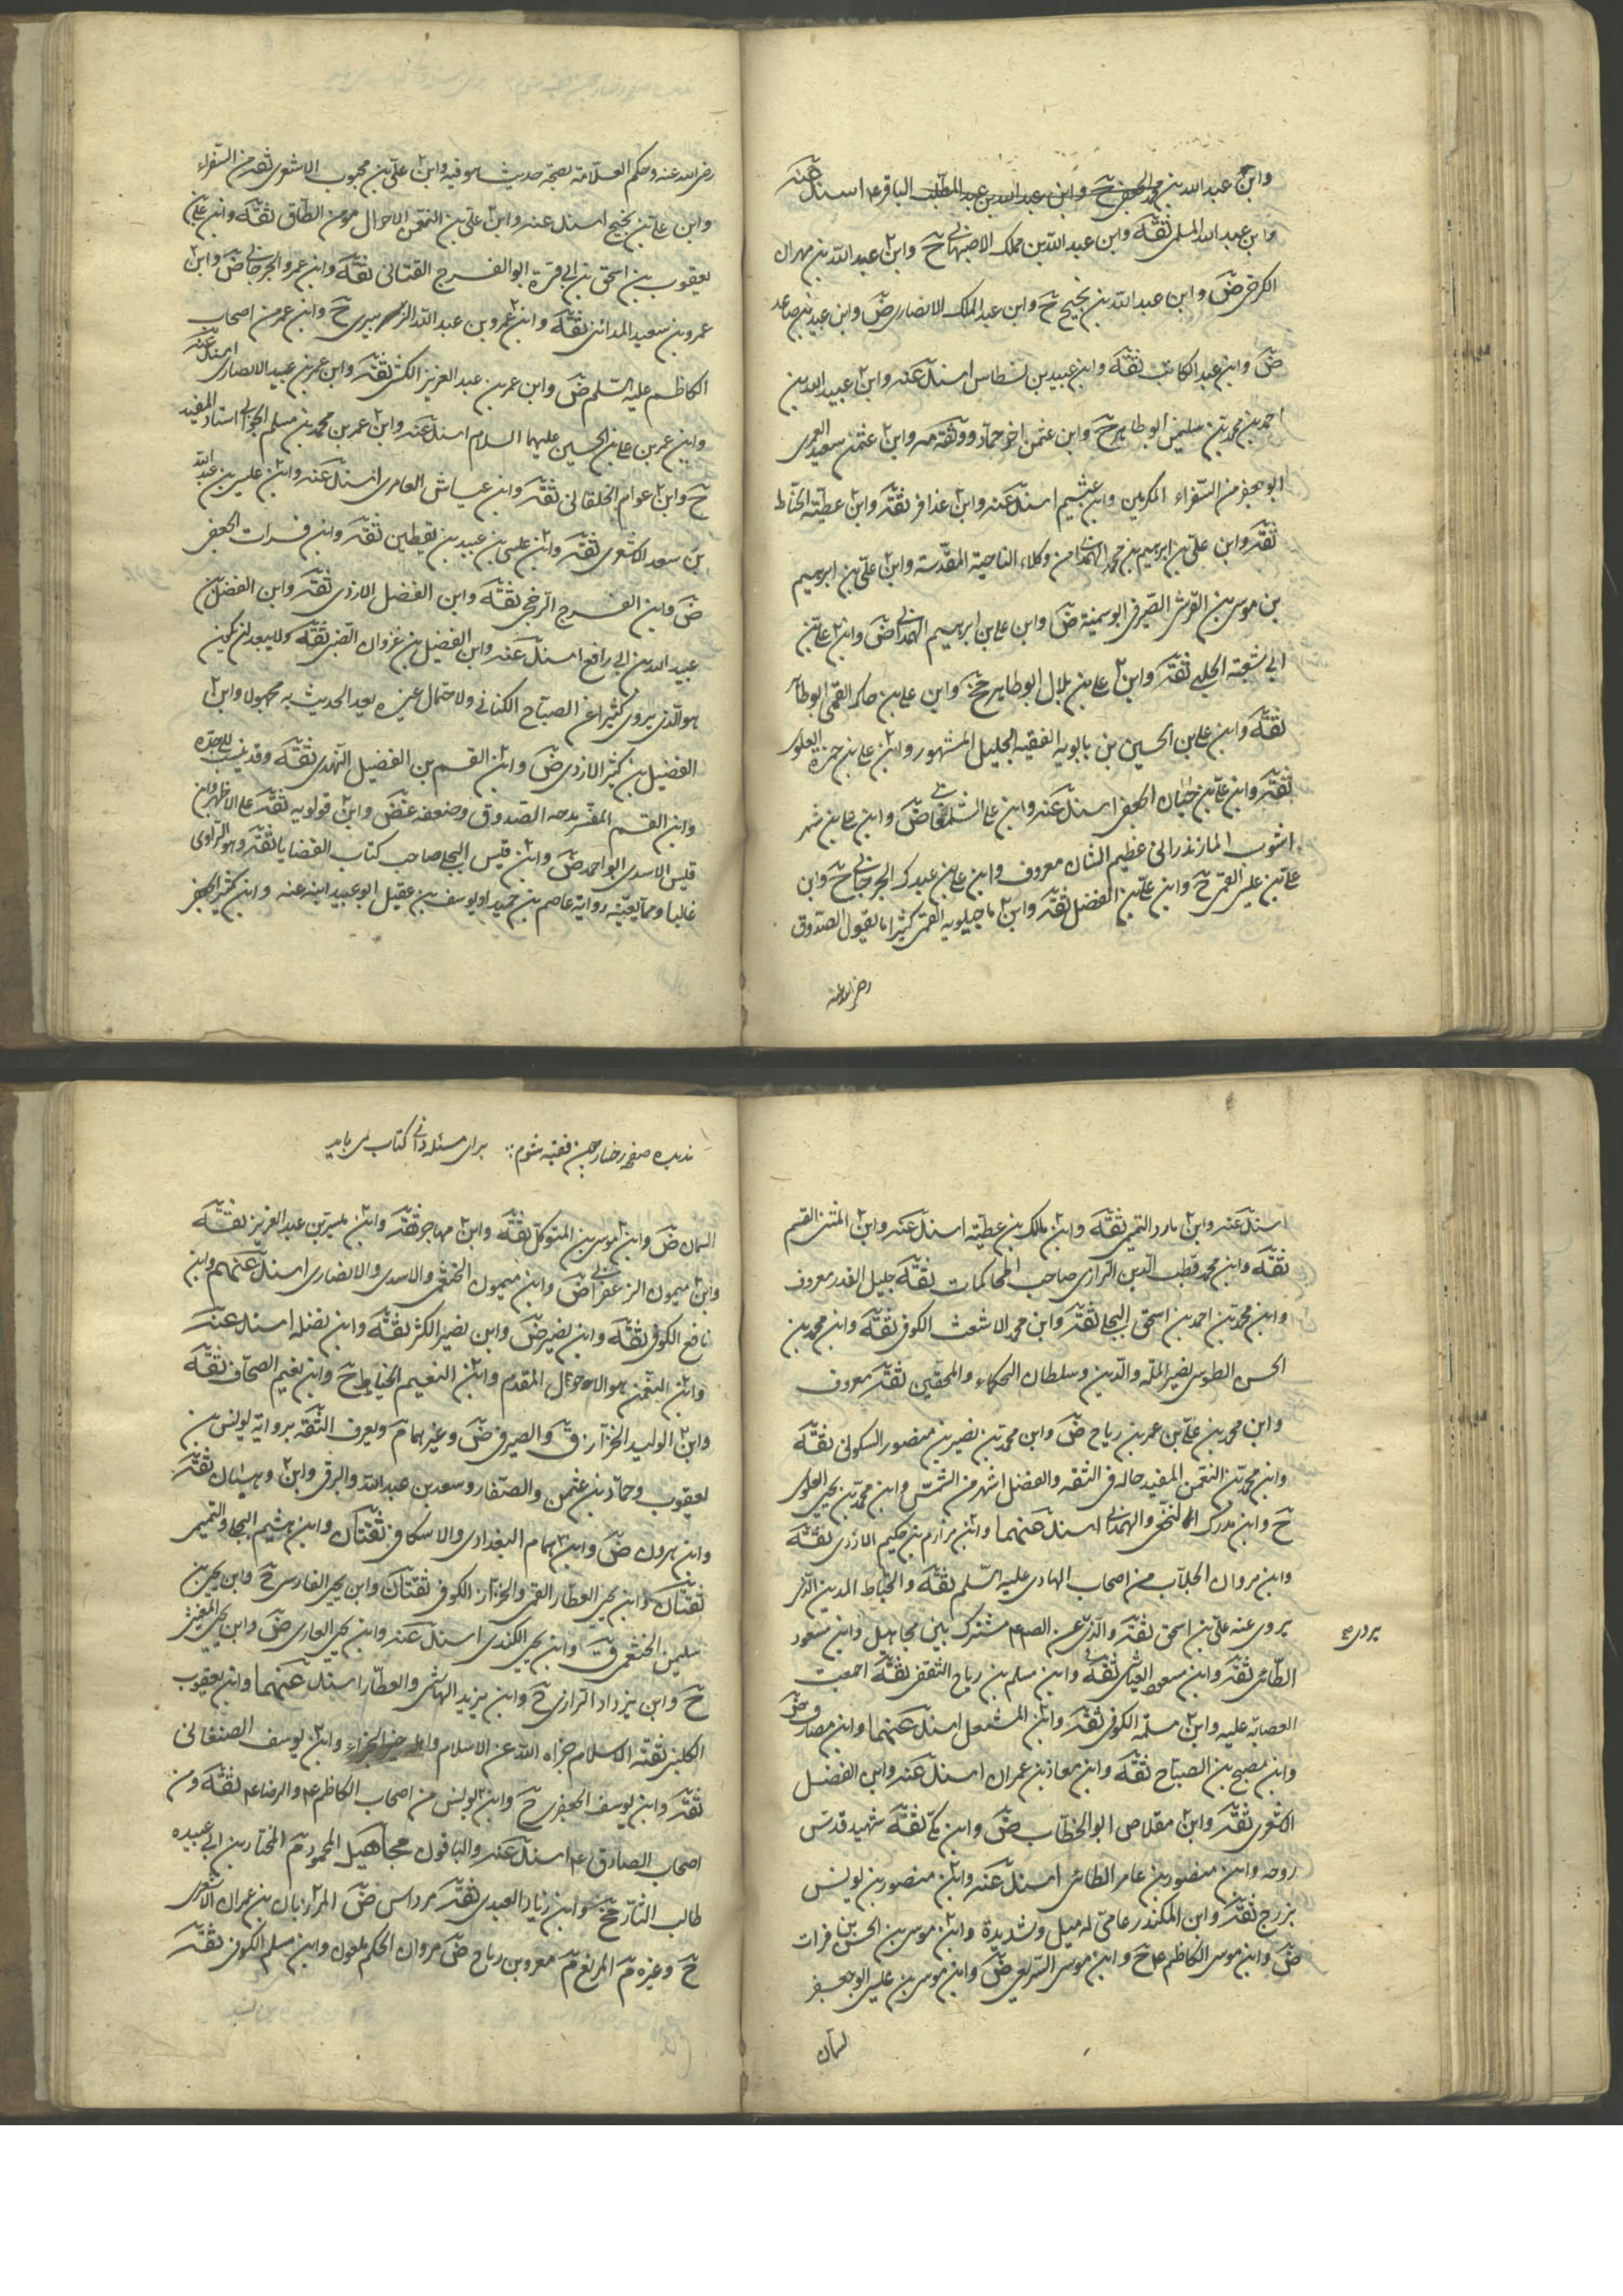 وابن عبد الله بن محمد الجعفری ح وابن عبد الله بن عبد المطلب الباقر ع اسند عنه
وابن عبد الله المسلمی ثقة وابن عبد الله بن مملک الاصبهانی ح وابن عبد الله بن مهران
الکرخی ض وابن عبد الله بن نجیح ح وابن عبد الملک الانصاری ض وابن عبید بن صاعد
ض وابن عبید الکاتب ثقة وابن عبید بن نسطاس اسند عنه وابن عبید الله بن
احمد بن محمد بن سلیمن ابو طاهر ح وابن عثمن اخو حماد ووثقه مه وابن عثمن بن سعید العمری
ابو جعفر من السفراء المکرمین وابن عثیم اسند عنه وابن عذافر ثقة وابن عطیة الحناط
ثقة وابن علی بن ابرهیم بن محمد الهمدانی من وکلاء الناحیة المقدسة وابن علی بن ابرهیم
بن موسی بن القرشی الصیرفی ابو سمینة ض وابن علی بن ابرهیم الهمدانی ض وابن علی بن
ابی شعبة الحلبی ثقة وابن علی بن بلال ابو طاهر خ وابن علی بن جاک القمی ابو طاهر
ثقة وابن علی بن الحسین بن بابویه الفقیه الجلیل المشهور وابن علی بن حمزة العلوی
ثقة وابن علی بن حیان الجعفی اسند عنه وابن علی الشلمغانی ض وابن علی بن شهر
اشوب المازندرانی عظیم الشان معروف وابن علی بن عبدک الجرجانی ح وابن
علی بن عیسی القمی ح وابن علی بن الفضل ثقة وابن ماجیلویه القمی کثیرا ما یقول الصدوق
رضی الله عنه
رضی الله عنه وحکم العلامة بصحة حدیث هو فیه وابن علی بن محبوب الاشعری ثقة من السفراء
وابن علی بن نجیح اسند عنه وابن علی بن النعمن الاحوال مومن الطاق ثقة وابن علی بن
یعقوب بن اسحق بن ابی قرة ابو الفرج القنانی ثقة وابن عمرو الجرجانی ض وابن
عمرو بن سعید المدائنی ثقة وابن عمرو بن عبد الله الزبیری ح وابن عمر من اصحاب
الکاظم علیه السلم ض وابن عمر بن عبد العزیز الکشی ثقة وابن عمر بن عبید الانصاری اسند عنه
وابن عمر بن علی بن الحسین علیهما السلام اسند عنه وابن عمر بن محمد بن مسلم الجعابی استاد المفید
ح وابن عوام الخلقانی ثقة وابن عیاش العامری اسند عنه وابن عیسی بن عبد الله
بن سعد الاشعری ثقة وابن عیسی بن عبید بن یقطین ثقة وابن فرات الجعفی
ض وابن الفرج الرخجی ثقة وابن الفضل الازدی ثقة وابن الفضل بن
عبید الله بن ابی رافع اسند عنه وابن الفضیل بن غزوان الضبی ثقة ولا یبعد ان یکون
هو الذی یروی کثیرا عن الصباح الکنانی ولاحتمال غیره یعد الحدیث به مجهولا وابن
الفضیل بن کثیر الازدی ض وابن القسم بن الفضیل النهدی ثقة وقد ینسب الی جده
وابن القسم المفسر مدحه الصدوق وضعفه غض وابن قولویه ثقة علی الاظهر وابن
قیس الاسدی ابو احمد ض وابن قیس البجلی صاحب کتاب القضایا ثقة وهو الراوی
غالبا ومما یعینه روایة عاصم بن حمید او یوسف بن عقیل او عبید ابنه عنه وابن کثیر الجعفی
اسند عنه وابن مارد التمیمی ثقة وابن ملک بن عطیة اسند عنه وابن المثنی القسم
ثقة وابن محمد قطب الدین الرازی صاحب المحاکمات ثقة جلیل القدر معروف
وابن محمد بن احمد بن اسحق البجلی ثقة وابن محمد الاشعث الکوفی ثقة وابن محمد بن
الحسن الطوسی نصیر الملة والدین وسلطان الحکماء والمحققین ثقة معروف
وابن محمد بن علی بن عمر بن ریاح ض وابن محمد بن نصیر بن منصور السکونی ثقة
وابن محمد بن النعمن المفید حاله فی الثقة والفضل اشهر من الشمس وابن محمد بن یحیی العلوی
ح وابن مدرک النخعی والهمدانی اسند عنهما وابن مرازم بن حکیم الازدی ثقة
وابن مروان الجلاب من اصحاب الهادی علیه السلم ثقة والخیاط المدینی الذی
یروی عنه علی بن اسحق ثقة والذی عن الص ع مشترک بین مجاهیل وابن مسعود
یروی
الطائی ثقة وابن مسعود العیاشی ثقة وابن مسلم بن ریاح الثقفی ثقة اجمعت
العصابة علیه وابن مسلمة الکوفی ثقة وابن المشمعل اسند عنهما وابن مصادف ض
وابن مصبح بن الصباح ثقة وابن معاذ بن عمران اسند عنه وابن الفضل
الاشعری ثقة وابن مقلاص ابو الخطاب ض وابن مکی ثقة شهید قدس
روحه وابن منصور بن عامر الطائی اسند عنه وابن منصور بن یونس
بزرج ثقة وابن المکندر عامی له میل وشدیدة وابن موسی بن الحسن بن فرات
ض وابن موسی الکاظم ع ح وابن موسی السریعی ض وابن موسی بن عیسی ابو جعفر
السمان
ندیده صفحه رخسار حسن فقیه شوم برای مسئله دانی کتاب می باید
السمان ض وابن موسی بن المتوکل ثقة وابن مهاجر ثقة وابن میسر بن عبد العزیز ثقة
وابن میمون الزعفرانی ض وابن میمون الخثعمی والاسدی والانصاری اسند عنهم وابن
نافع الکوفی ثقة وابن نصیر ض وابن نصیر الکشی ثقة وابن نضلة اسند عنه
وابن النعمن هو الاحوال المقدم وابن النعیم الخیاط ح وابن نعیم الصحاف ثقة
وابن الولید الخزاز ق والصیرفی ض وغیرهما م ویعرف الثقة بروایة یونس بن
یعقوب وحماد بن عثمن والصفار وسعد بن عبد الله والبرقی وابن وهبان ثقة
وابن هرون ض وابن همام البغدادی والاسکافی ثقتان وابن هشیم البجلی والتمیمی
ثقتان وابن یحیی العطار القمی والخزاز الکوفی ثقتان وابن یحیی الفارسی ح وابن یحیی بن
سلیمن الخثعمی ق وابن یحیی الکندی اسند عنه وابن یحیی المعاری ض وابن یحیی المعینی
ح وابن یزداد الرازی ح وابن یزید الهاشمی والعطار اسند عنهما وابن یعقوب
الکلینی ثقة الاسلام جزاه الله عن الاسلام واهله خیر الجزاء وابن یوسف الصنعانی
ثقة وابن یوسف الجعفری ح وابن یونس من اصحاب الکاظم ع والرضا ع ثقة ومن
اصحاب الصادق ع اسند عنه والباقون مجاهیل المحمود م المختار بن ابی عبیده
طالب الثار خ وابن زیاد العبدی ثقة مرداس ض المرزبان بن عمران الاشعری
ح وغیره م المرتفع م معرو بن ریاح ض مروان الحکم ملعون وابن مسلم الکوفی ثقة